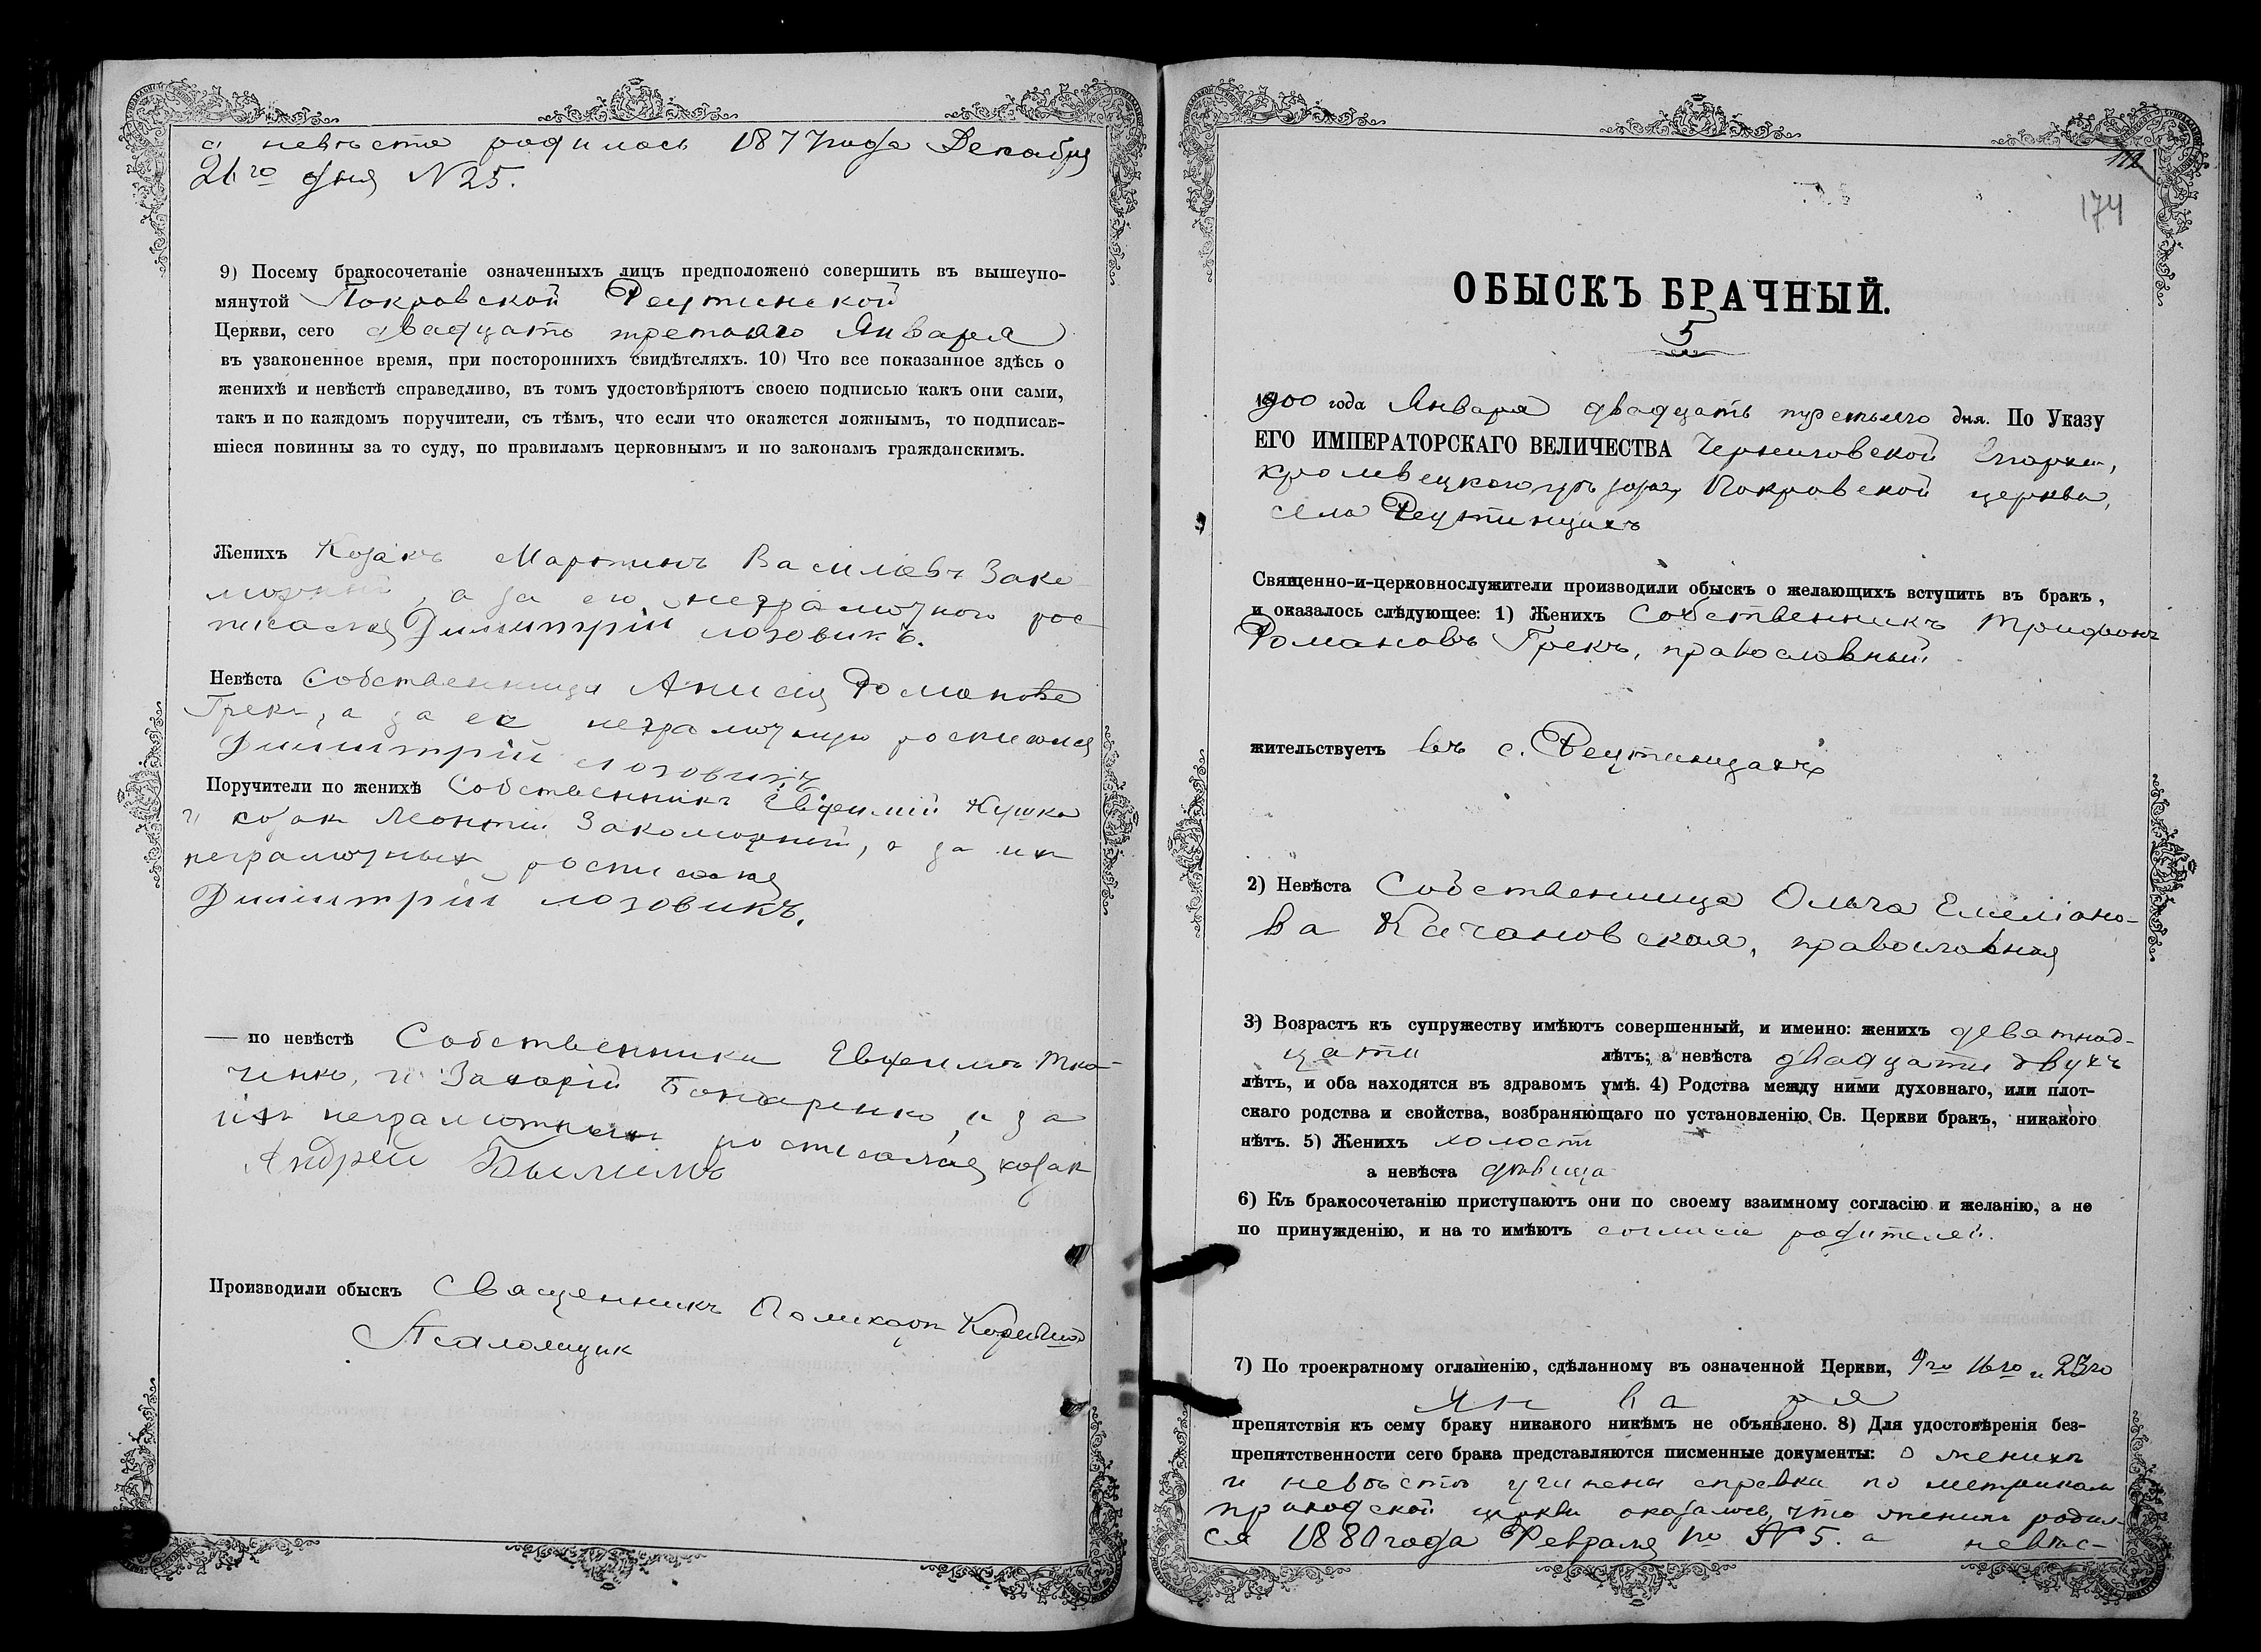 а невѣста родилась 1877 года Декабря
21го дня N 25.
9) Посему бракосочетаніе означенныхъ лицъ предположено совершить въ вышеупо-
мянутой Покровской Реутинской
Церкви, сего двадцать третьяго Января
въ узаконенное время, при постороннихъ свидѣтеляхъ. 10) Что все показанное здѣсь о
женихѣ и невѣстѣ справедливо, въ томъ удостовѣряютъ своею подписью какъ они сами,
такъ и по каждомъ поручители, съ тѣмъ, что если что окажется ложнымъ, то подписав-
шіеся повинны за то суду, по правиламъ церковнымъ и по законамъ гражданскимъ.
Женихъ Козакъ Мартинъ Василіевъ Зако
морний, а за его неграмотного рос
писался Димитрій лозовикъ.
Невѣста Собственница Анисія Романова
Грекъ, а за ее неграмотную росписался
Димитрій лозовикъ.
Поручители по женихѣ Собственникъ Евфимій Кушка
и козак Леонтій Закоморний, а за их
неграмотных росписался
Димитрій лозовикъ.
— по невѣстѣ Собственники Евфимъ Тка-
ченко, и Захарій Бондаренко, а за
ихъ неграмотныхъ росписался козак
Андрей Былимъ
Производили обыскъ Священникъ Поликарп
Псаломщик
112
174
ОБЫСКЪ БРАЧНЫЙ.
5
1900 года Января двадцать третьяго дня. По Указу
ЕГО ИМПЕРАТОРСКАГО ВЕЛИЧЕСТВА Черниговской Епархіи,
кролевецкого уѣзда, Покровской церкви,
села Реутинцахъ
Священно-и-церковнослужители производили обыскъ о желающихъ вступить въ бракъ,
и оказалось слѣдующее: 1) Женихъ Собственникъ Трифонъ
Романовъ Грекъ, православный
жительствуетъ въ с. Реутинцахъ
2) Невѣста Собственница Ольга Емеліано-
ва Качановская, православная
3) Возрастъ къ супружеству имѣютъ совершенный, и именно: женихъ девятнад-
цати лѣтъ; а невѣста двадцати двухъ
лѣтъ, и оба находятся въ здравомъ умѣ. 4) Родства между ними духовнаго, или плот-
скаго родства и свойства, возбраняющаго по установленію Св. Церкви бракъ, никакого
нѣтъ. 5) Женихъ холостъ
а невѣста дѣвица
6) Къ бракосочетанію приступаютъ они по своему взаимному согласію и желанію, а не
по принужденію, и на то имѣютъ согласіе родителей.
7) По троекратному оглашенію, сдѣланному въ означенной Церкви, 9го 16го и 23го
Января
препятствія къ сему браку никакого никѣмъ не объявлено. 8) Для удостовѣренія без-
препятственности сего брака представляются писменные документы: о женихѣ
и невѣстѣ учинены справки по метрикам
приходской церкви оказалось, что жених родил-
ся 1880 года Февраля 1го N 5. а невѣс-